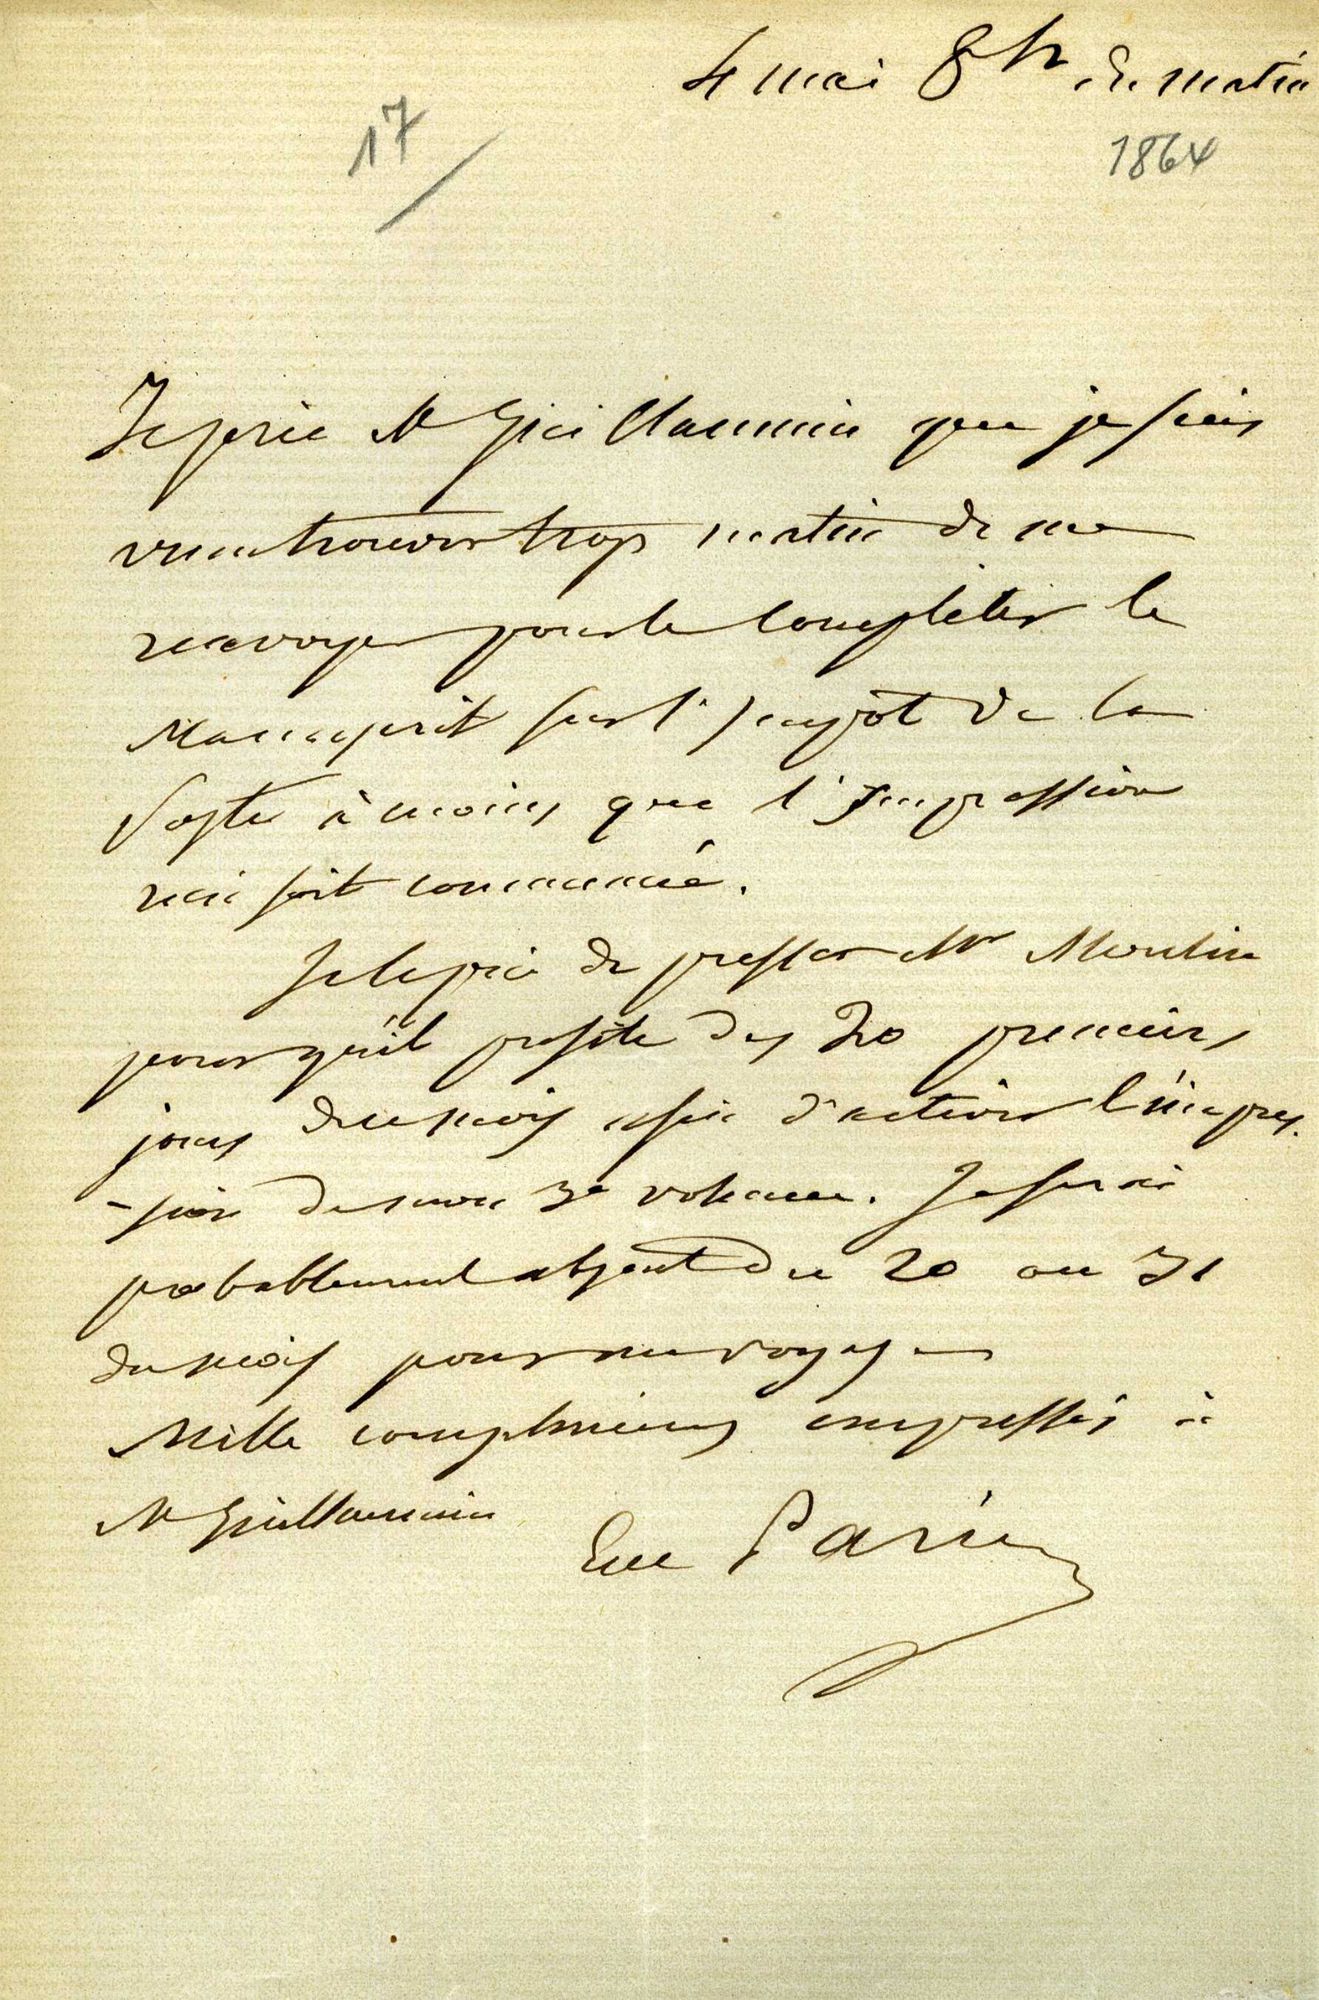 4 mai 8h du matin
17
1864
Je prie Mr Guillaumin que je suis
venu trouver trop matin de me
renvoyer pour le compléter le
Manuscrit sur l'Impôt de la
Poste à moins que l'Impression
n'en soit commencée.
Je le prie de presser Mr Moulin
pour qu'il profite des 20 premiers
jours du mois afin d'activer l'impres-
-sion de mon 3e volume. Je serai
probablement absent du 20 au 31
du mois pour un voyage
Mille complimens empressés à
Mr Guillaumin
E de Parieu